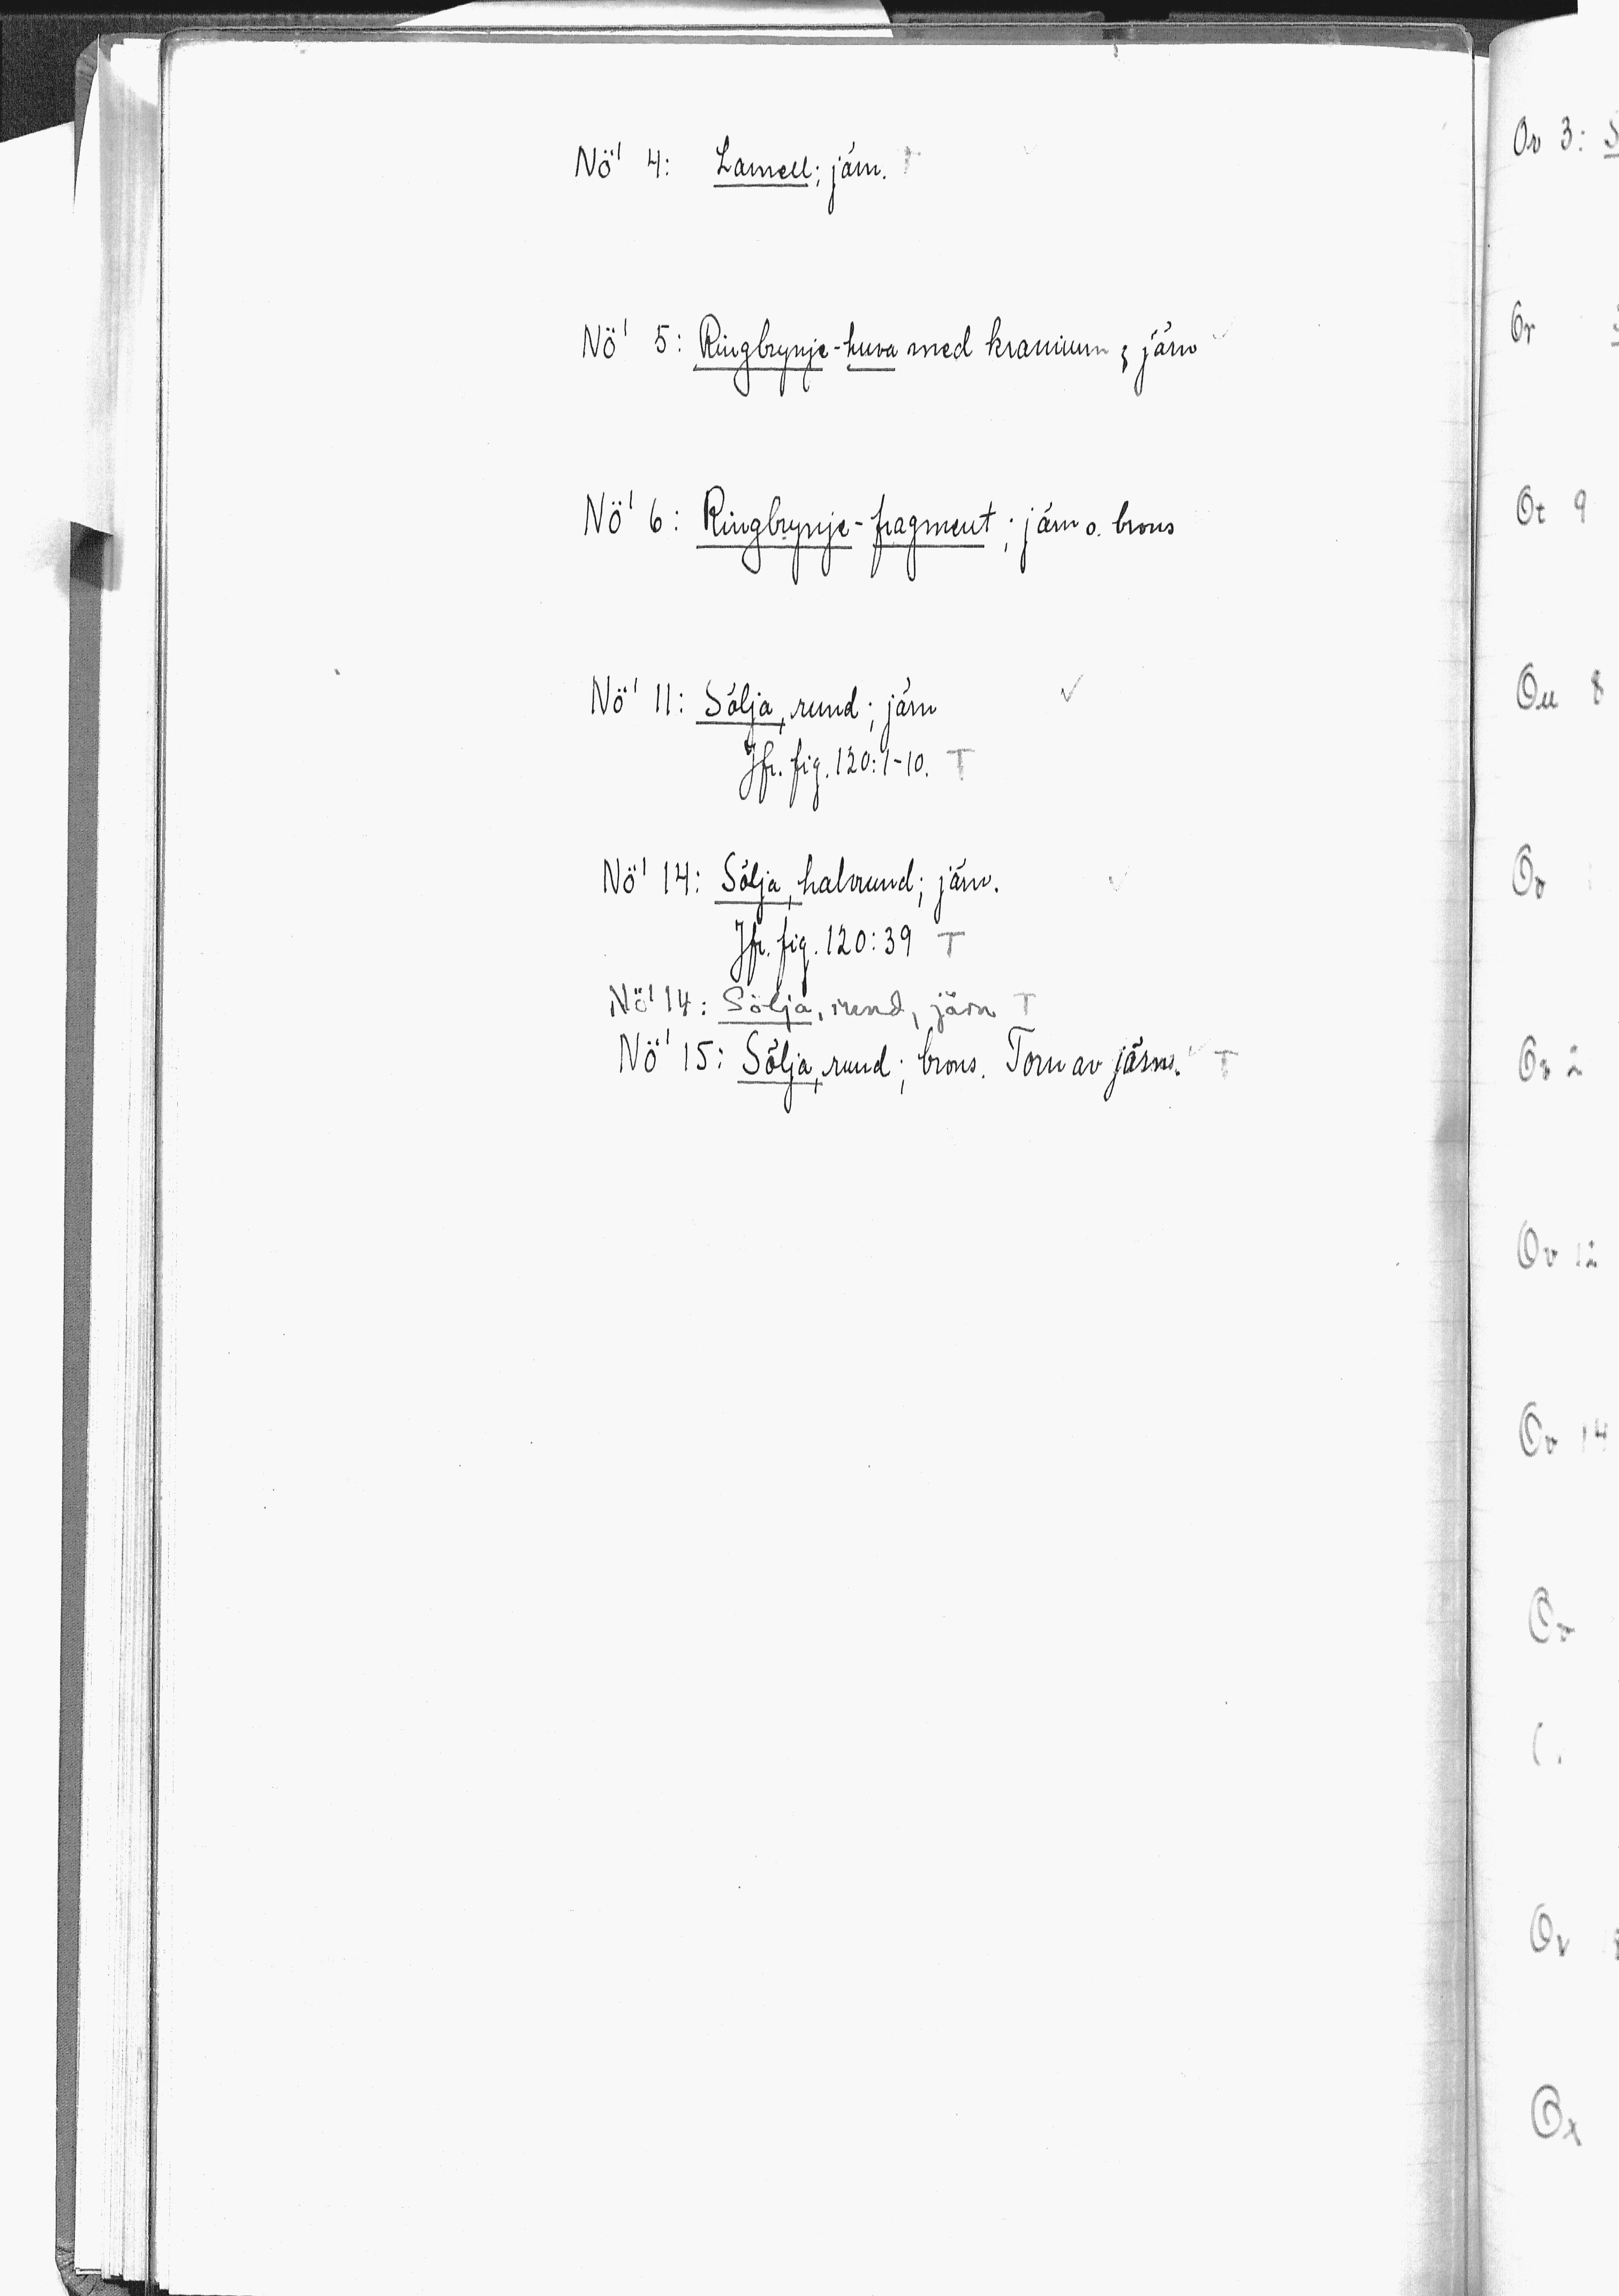 Nö' 4: Lamell; järn. T
Nö' 5: Ringbrynje-huva med kranium; järn
Nö' 6: Ringbrynje-fragment; järn o. brons
Nö' 11: Sölja, rund; järn ✓
Jfr. fig. 120:1-10. T
Nö' 14: Sölja, halvrund; järn. ✓
Jfr. fig. 120:39 T
Nö' 14: Sölja, rund, järn T
Nö' 15: Sölja, rund; brons. Torn av järn. T
Or 3:
Or
Ot 9
Ou 8
Ov
Ov 12
Ov 14
Ov
Ov
Ox